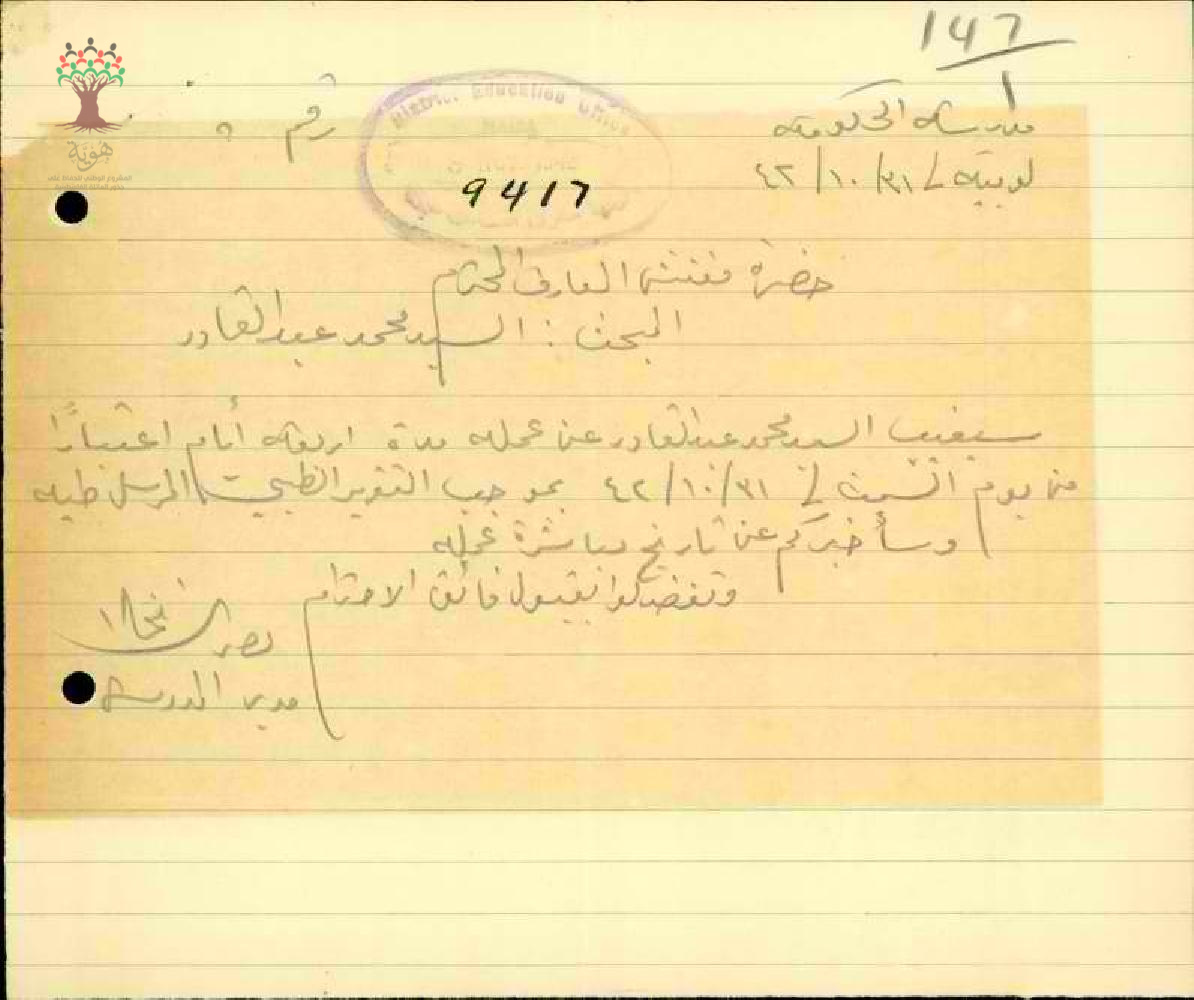 147
مدرسة الحكومة
رقم
District Education Office
لوبية في ٣١/١٠/٤٢
9417
هَوِيّة
حضرة مفتش المعارف المحترم
المبحث : السيد محمد عبد القادر
سيغيب السيد محمد عبد القادر عن عمله مدة اربعة أيام اعتبارًا
من يوم السبت في ٣١/١٠/٤٢ بموجب التقرير الطبي المرسل طيه
وسأخبركم عن تاريخ مباشرة عمله
وتفضلوا بقبول فائق الاحترام
مدير المدرسة